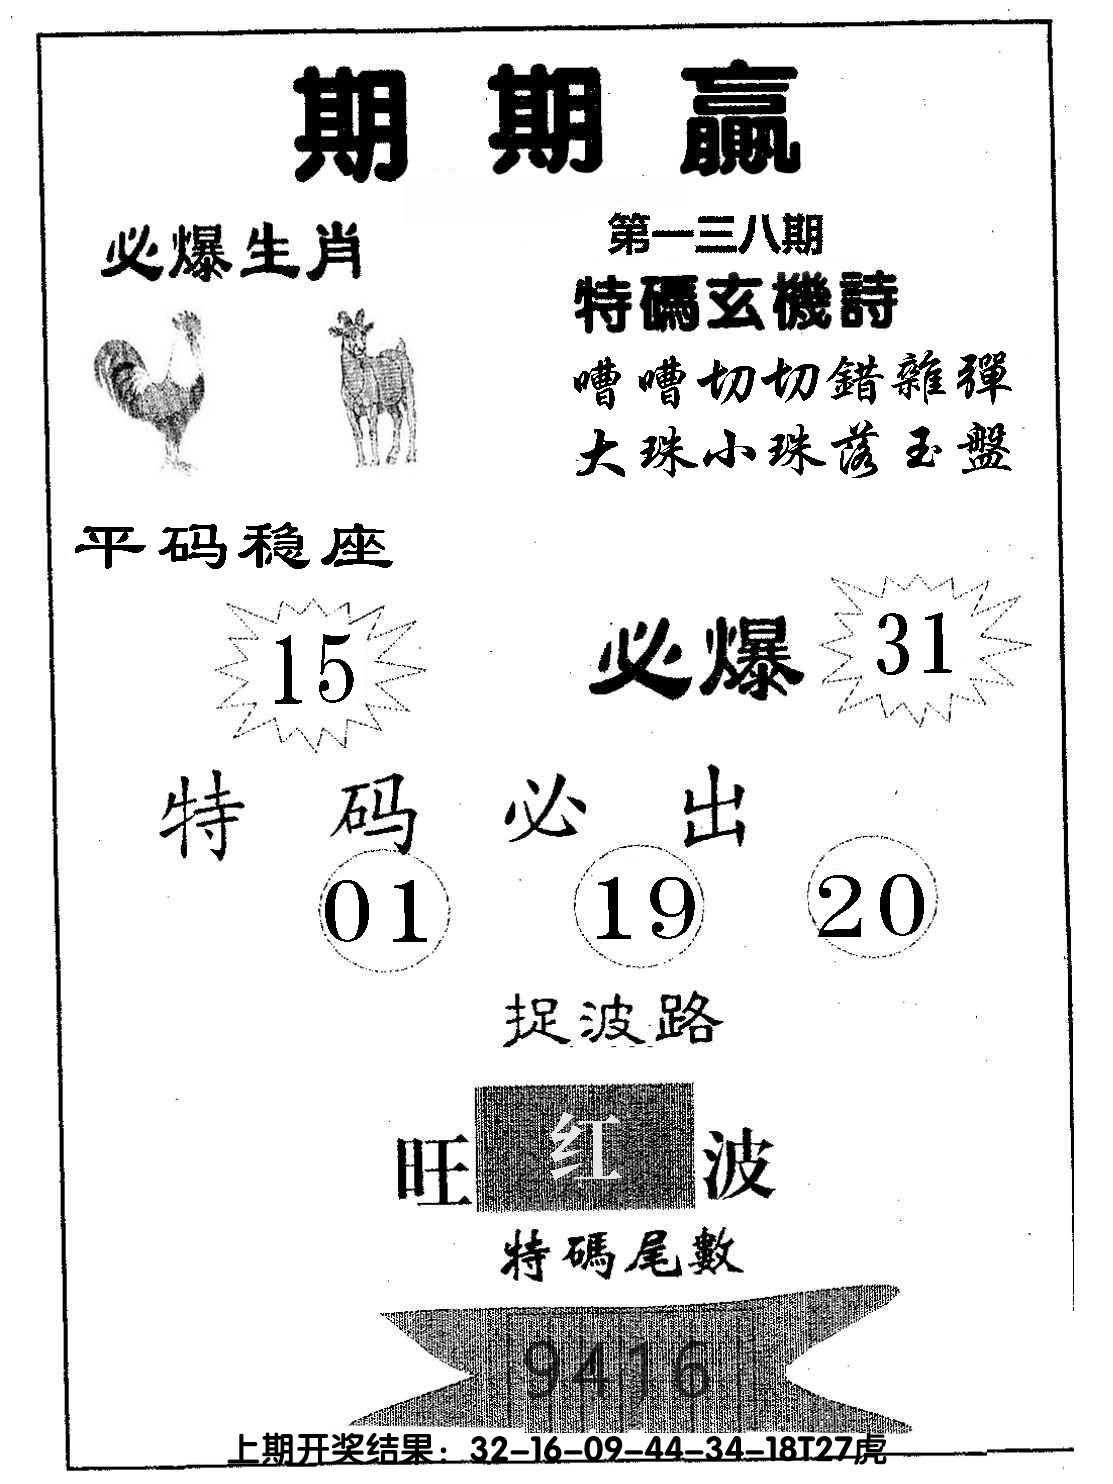 期期赢
必爆生肖
第一三八期
特碼玄機詩
嘈嘈切切錯雜彈
大珠小珠落玉盤
平码稳座
15
必爆 31
特码必出
01 19 20
捉波路
旺红波
特碼尾數
9416
上期开奖结果：32-16-09-44-34-18T27虎